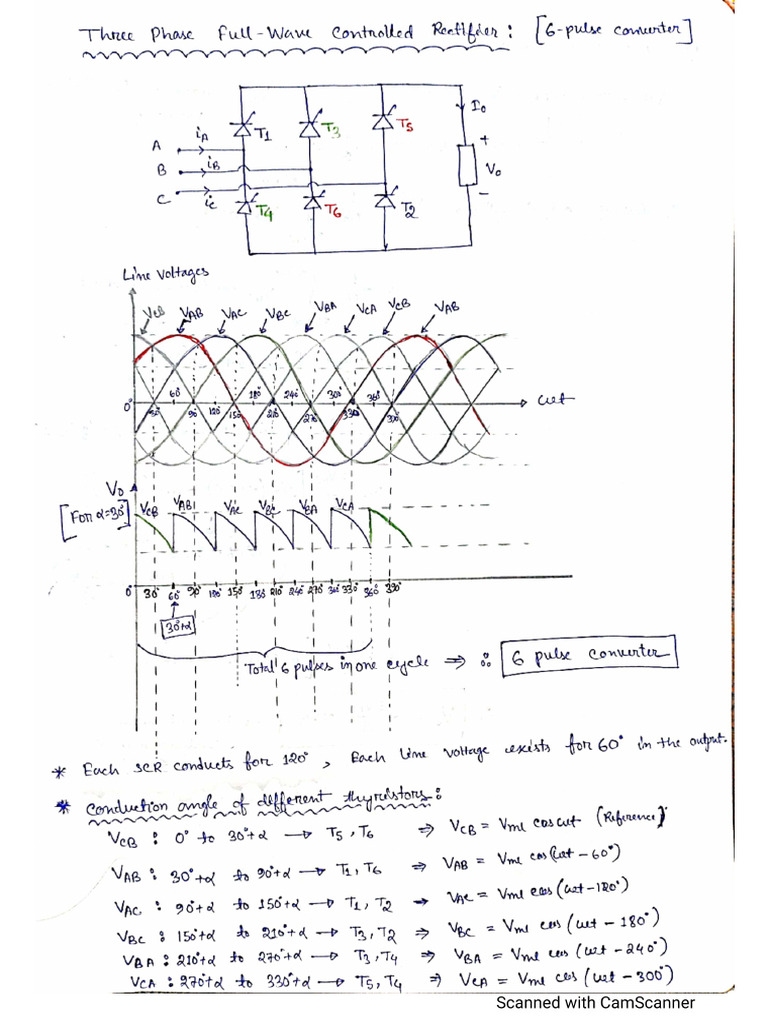 Three Phase Full-Wave Controlled Rectifier: [6-pulse converter]
T1 T3 T5 I0
A iA
B iB
C iC
+
V0
-
T4 T6 T2
Line Voltages
VCB VAB VAC VBC VBA VCA VCB VAB
0° 30° 60° 90° 120° 150° 180° 210° 240° 270° 300° 330° 360° 390° ωt
V0
[For α=30°]
VCB VAB VAC VBC VBA VCA
0 30° 60° 90° 120° 150° 180° 210° 240° 270° 300° 330° 360° 390°
30°+α
Total 6 pulses in one cycle ⇒ ∴ 6 pulse converter
* Each SCR conducts for 120°, Each Line voltage exists for 60° in the output.
* Conduction angle of different thyristors:
VCB : 0° to 30°+α → T5, T6 ⇒ VCB = Vml cosωt (Reference)
VAB : 30°+α to 90°+α → T1, T6 ⇒ VAB = Vml cos(ωt-60°)
VAC : 90°+α to 150°+α → T1, T2 → VAC = Vml cos(ωt-120°)
VBC : 150°+α to 210°+α → T3, T2 ⇒ VBC = Vml cos(ωt-180°)
VBA : 210°+α to 270°+α → T3, T4 ⇒ VBA = Vml cos(ωt-240°)
VCA : 270°+α to 330°+α → T5, T4 ⇒ VCA = Vml cos(ωt-300°)
Scanned with CamScanner